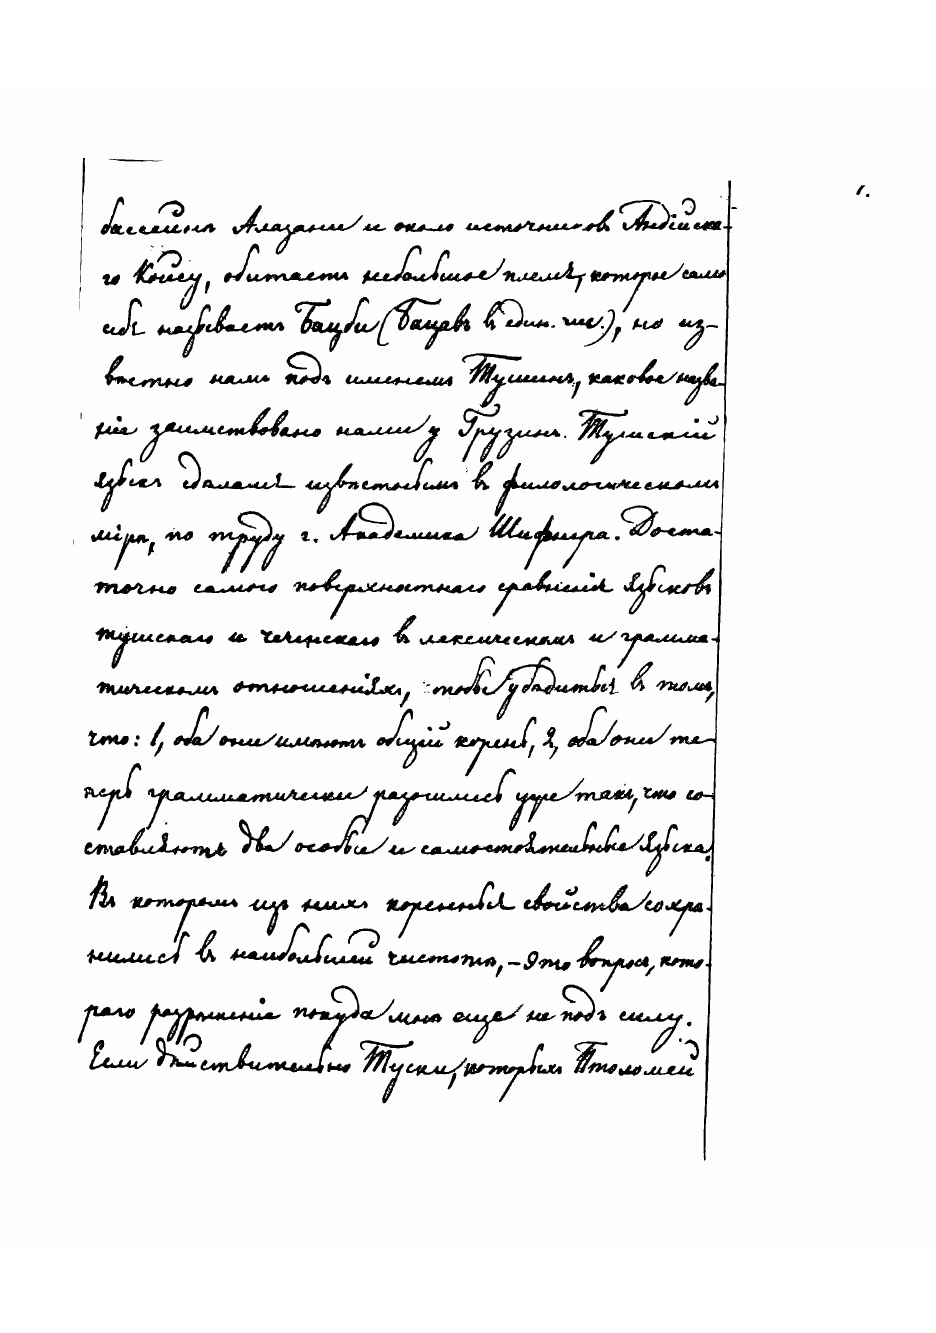 1.
бассейнѣ Алазани и около источниковъ Андійска-
го Койсу, обитаетъ небольшое племя, которое само
себя называетъ Бацби (Бацавъ в един. чис.), но из-
вѣстно намъ подъ именемъ Тушинъ, каковое назва-
ніе заимствовано нами у Грузинъ. Тушскій
языкъ сдѣлался извѣстнымъ въ филологическомъ
мірѣ, по труду г. Академика Шифнера. Доста-
точно самого поверхностнаго сравненія языковъ
тушскаго и чеченскаго въ лексическомъ и грамма-
тическомъ отношеніяхъ, чтобы убѣдиться въ томъ,
что: 1, оба они имѣютъ общій корень, 2, оба они те-
перь грамматически разошлись уже такъ, что со-
ставляютъ два особые и самостоятельные языка.
Въ которомъ изъ нихъ коренныя свойства сохра-
нились въ наибольшей чистотѣ, – это вопросъ, кото-
раго разрѣшеніе покуда мнѣ еще не подъ силу.
Если дѣйствительно Туски, которыхъ Птоломей